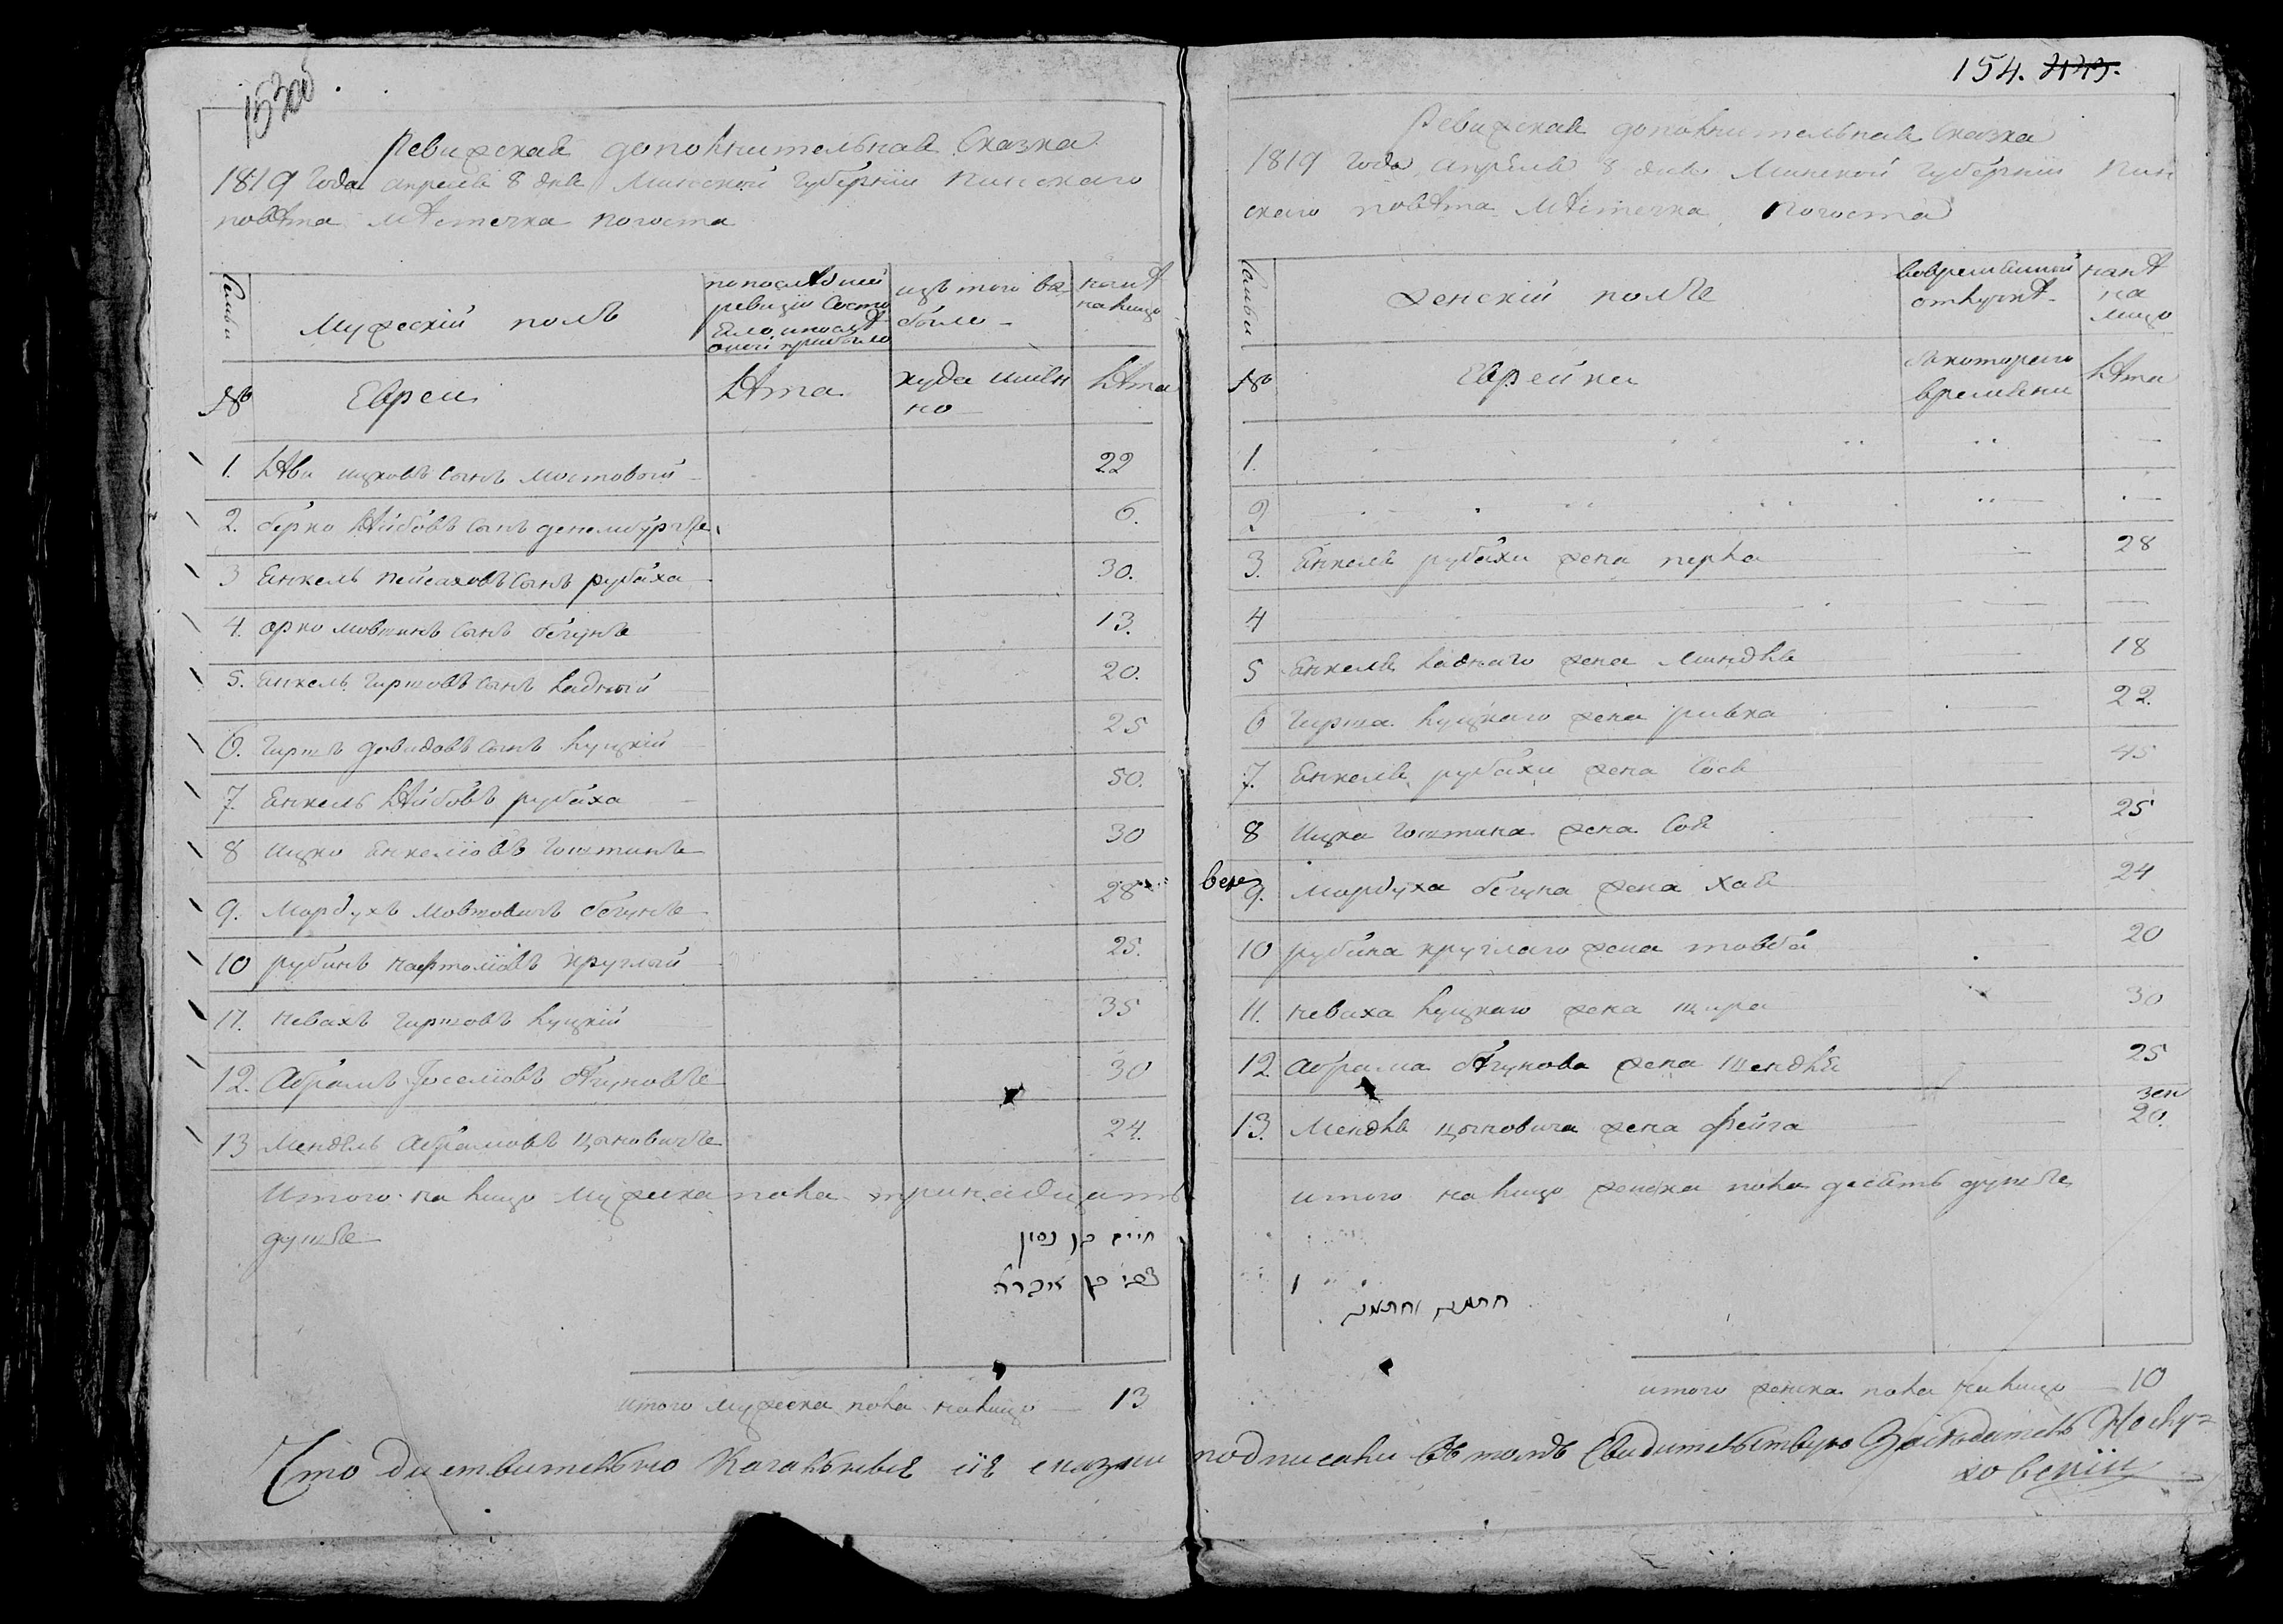 15300
Ревизская дополнительная Сказка
1819 Года апреля 8 дня Минской Губернии Пинскаго
повѣта мѣстечка погоста
Семьи
Мужескій полъ
по послѣдней
ревизіи Состо
яло и послѣ
оной прибыло
изъ того вы-
было
нынѣ
на лицо
№
Евреи
Лѣта
куда имѣн
но
Лѣта
1. Лѣви ицковъ Сынъ мостовый 22
2. берко Лѣйбовъ Сынъ 6.
3 Енкель пейсаховъ Сынъ рубаха 30.
4. орко мовшинъ Сынъ бегунъ 13.
5. Енкель гиршовъ Сынъ Ладный 20.
6. Гиршъ довидовъ Сынъ Луцкій 25
7. Енкель Лѣйбовъ рубаха 50.
8 ицко Енкеліовъ Гоштинъ 30
9. Мордухъ Мовшовичъ бегунъ 28
10 рубинъ нафтоліовъ круглый 25.
11. невахъ Гиршовъ Луцкій 35
12. Абрамъ Іоселіовъ бѣгуновъ 30
13 Мендель Абрамовъ Цыновичъ 24.
Итого на лицо мужеска пола тринадцать
душъ
חיים בן נסן
צבי בן אברה
итого мужеска пола на лицо — 13
154.
Ревизская дополнительная Сказка
1819 Года Апреля 8 дня Минской Губерніи Пин
скаго повѣта Мѣстечка Погоста
Семьи
женскій полъ
во временной
отлучкѣ
нынѣ
на
лицо
№
Еврейки
съ котораго
времени
Лѣта
1.
2
3. Енкеля рубахи жена перла 28
4
5 Енкеля Ладнаго жена Миндля 18
6 Гирша Луцкаго жена ривка 22.
7. Енкеля рубахи жена Сося 45
8 ицка Гоштина жена Соя 25
9. Мордуха бегуна жена Хая 24
10 рубина круглаго жена товба 20
11. неваха Луцкаго жена шпра 30
12. Абрама бѣгунова жена Шендля 25
13. Мендля цыновича жена фейга 20.
итого на лицо женска пола десять душъ
итого женска пола на лицо — 10
Что действительно Кагальные сіе сказки подписали въ томъ Свидительствую Заседатель